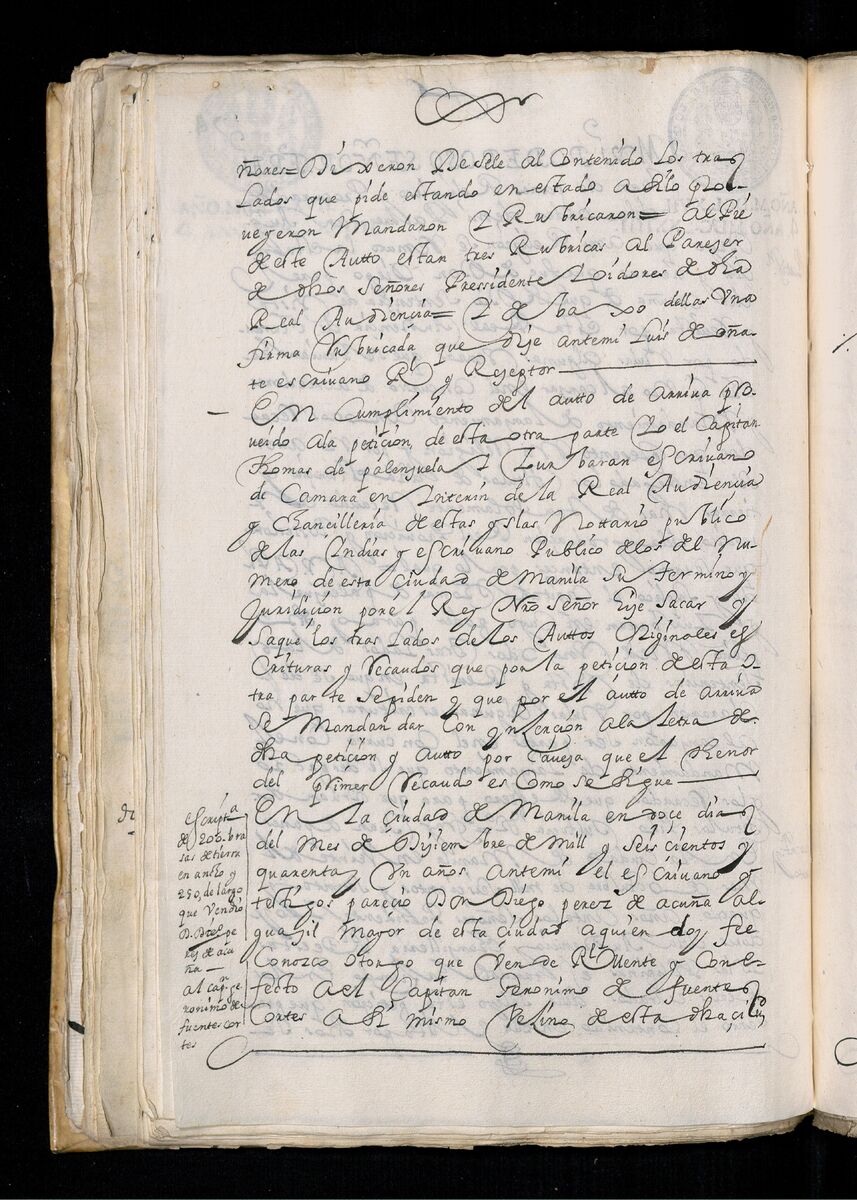 ñores = Dixeron Desele al Contenido Los tras
Lados que pide estando en estado a si lo pro-
veyeron Mandaron Y Rubricaron = al Pie
de este Autto estan tres Rubricas al Pareser
de dhos Señores Pressidente Y oidores de dha
Real Audiencia = Y de baxo dellas Una
firma Rubricada que dise antemi Luis de oña-
te escrivano Rl y Reseptor
En Cumplimiento del autto de arriva pro-
veido a la petiçion, de esta otra parte Yo el Capitan
Thomas de palençuela Y Zurbaran escrivano
de Camara en Ynterin de la Real Audiencia
y Chancilleria de estas yslas Nottario publico
de las Yndias y escrivano Publico de los del Nu-
mero de esta Ciudad de Manila Su termino y
Juridicion por el Rey Nro Señor hise Sacar y
Saque los tras Lados de los Auttos Originales es
Crituras y Recaudos que por la petiçion de esta o-
tra parte Se piden y que por el autto de arriva
Se Mandan dar Con ynserçion a la letra de
dha petiçion y autto por Caveza que el thenor
del primer Recaudo es Como se Sigue
En La Ciudad de Manila en doçe dias
del Mes de Diziembre de Mill y Seisçientos y
quarenta y Un años antemi el escrivano y
testigos pareçio Don Diego perez de acuña al-
guazil Mayor de esta Ciudad aquien doy fee
Conozco Otorgo que Vende Rl Mente y Con e-
fecto a el Capitan Geronimo de fuentes
Cortes a si mismo Veçino de esta dha çiud
escriptra
de 200. bra
sas de tierra
en ancho y
250, de largo
que Vendio
D. Diego pe
rez de acu
ña
al capn ge
ronimo de
fuentes cor
tes